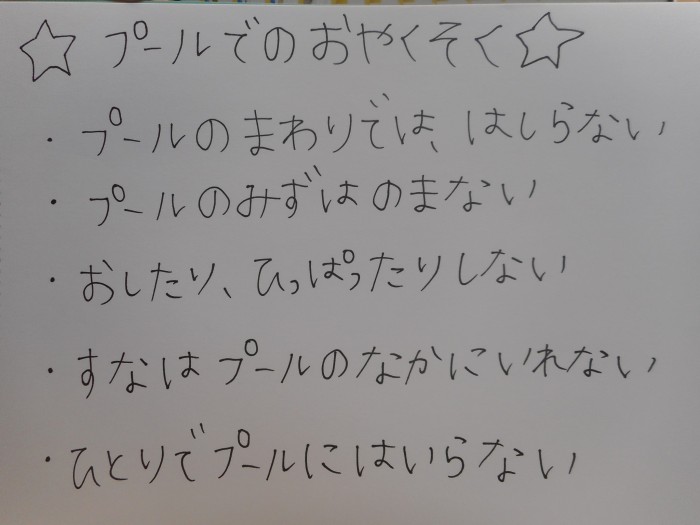 ☆ プールでのおやくそく ☆
・プールのまわりでは、はしらない
・プールのみずはのまない
・おしたり、ひっぱったりしない
・すなはプールのなかにいれない
・ひとりでプールにはいらない